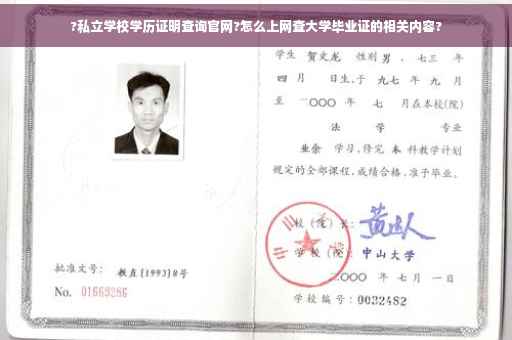 ?私立学校学历证明查询官网?怎么上网查大学毕业证的相关内容?
学生 贺文龙 性别 男 、七三 年
四 月 日生,于 九七 年 九 月
至 二〇〇〇 年 七 月在本校(院)
法 学 专业
业余 学习,修完 本 科教学计划
规定的全部课程,成绩合格,准予毕业。
校(院)长:
学校(院): 中山大学
二〇〇〇 年 七 月 一 日
批准文号: 教直[1993]8号
No. 01669286
学校编号: 0032482